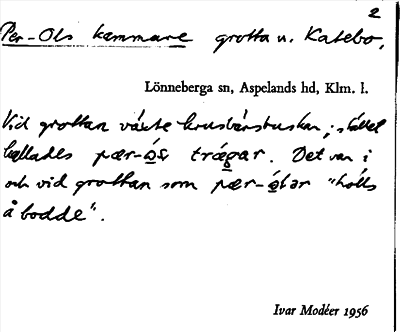 2
Per-Ols kammare grotta n. Katebo,
Lönneberga sn, Aspelands hd, Klm. l.
Vid grottan växte krusbärsbuskar; stället
kallades pær-ós trǽgar. Det var i
och vid grottan som pær-ólar "hölls
å bodde".
Ivar Modéer 1956